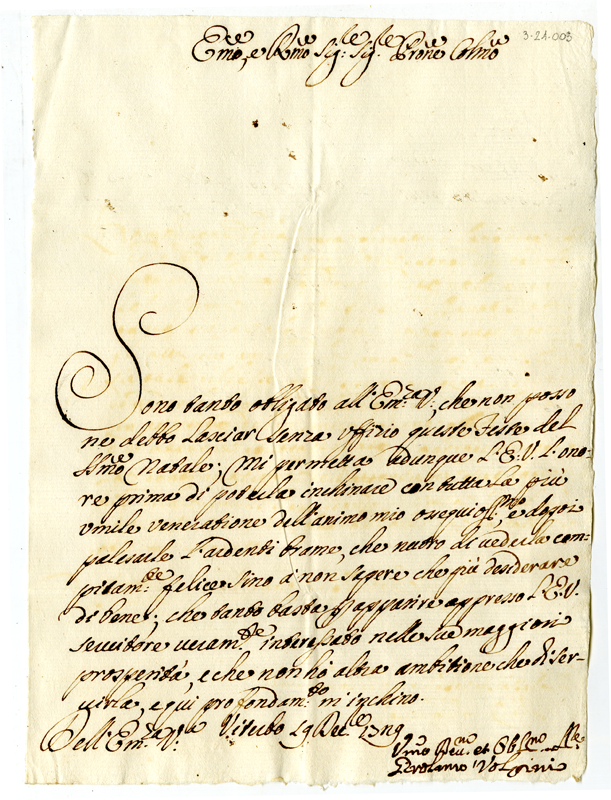 3-21-003
Em̃o, e Rm̃o Sig.^r Sig.^r Prone Colmo
Sono tanto obligato all'Em.^za V. che non posso
ne debbo lasciar senza uffizio queste Feste del
SSmo Natale; Mi permetta adunque l'E.V. l'ono-
re prima di poterla inchinare con tutta la più
umile venerazione dell'animo mio ossequios.^mo, e doppoi
palesarle l'ardenti brame, che nutro di vederla com-
pitam.^te felice sino à non sapere che più desiderare
di bene; che tanto basta apparire appresso l'E.V.
servitore veram.^te interessato nelle sue maggiori
prosperità, e che non hò altra ambitione che di ser-
virla, e qui profondam.^te m'inchino.
Dell'Em.^za V.^a Viterbo 19 Dec.^e
Um̃o Dev.^mo et Obl.^mo
Girolamo